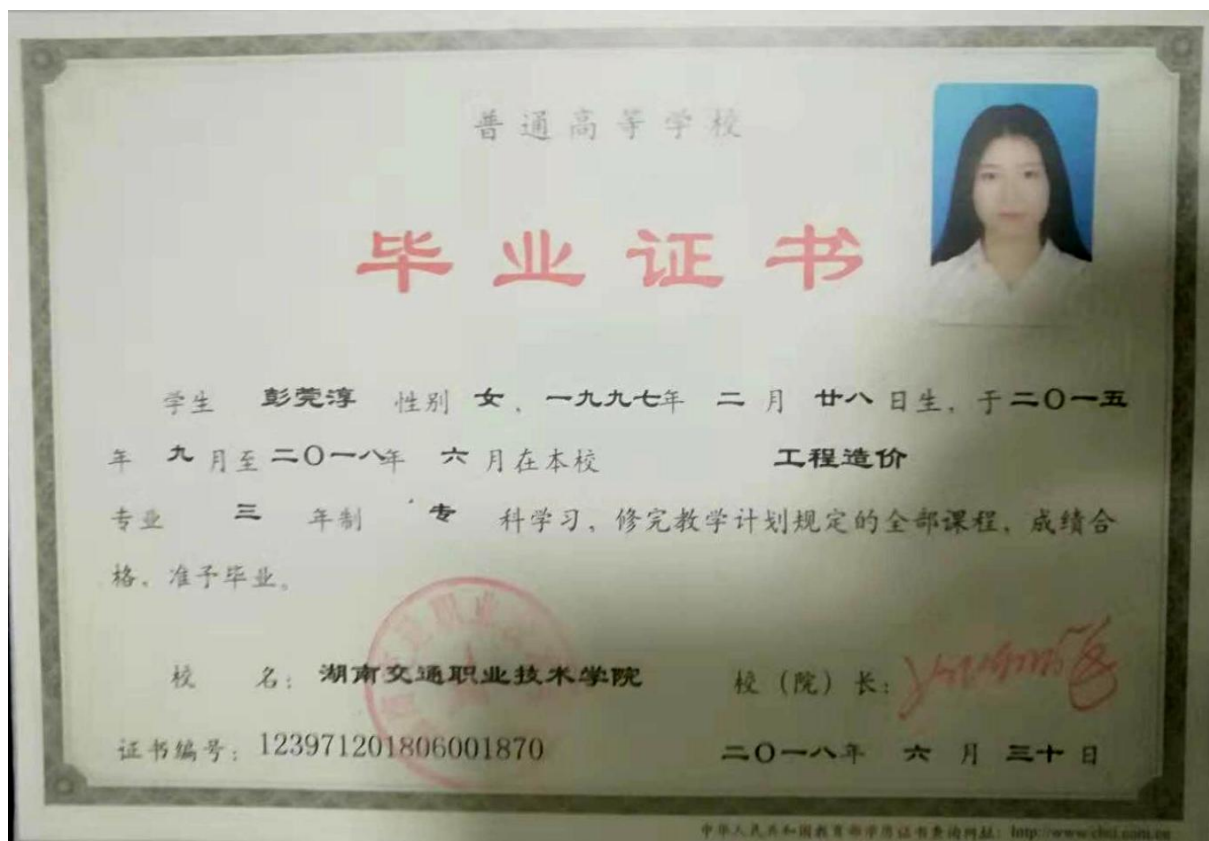 普通高等学校
毕业证书
学生 彭莞淳 性别 女，一九九七年 二 月 廿八 日生，于二〇一五
年 九 月至二〇一八年 六 月在本校 工程造价
专业 三 年制 专 科学习，修完教学计划规定的全部课程，成绩合
格，准予毕业。
校 名：湖南交通职业技术学院 校（院）长：
证书编号：123971201806001870 二〇一八年 六 月 三十 日
中华人民共和国教育部学历证书查询网址：http://www.chsi.com.cn